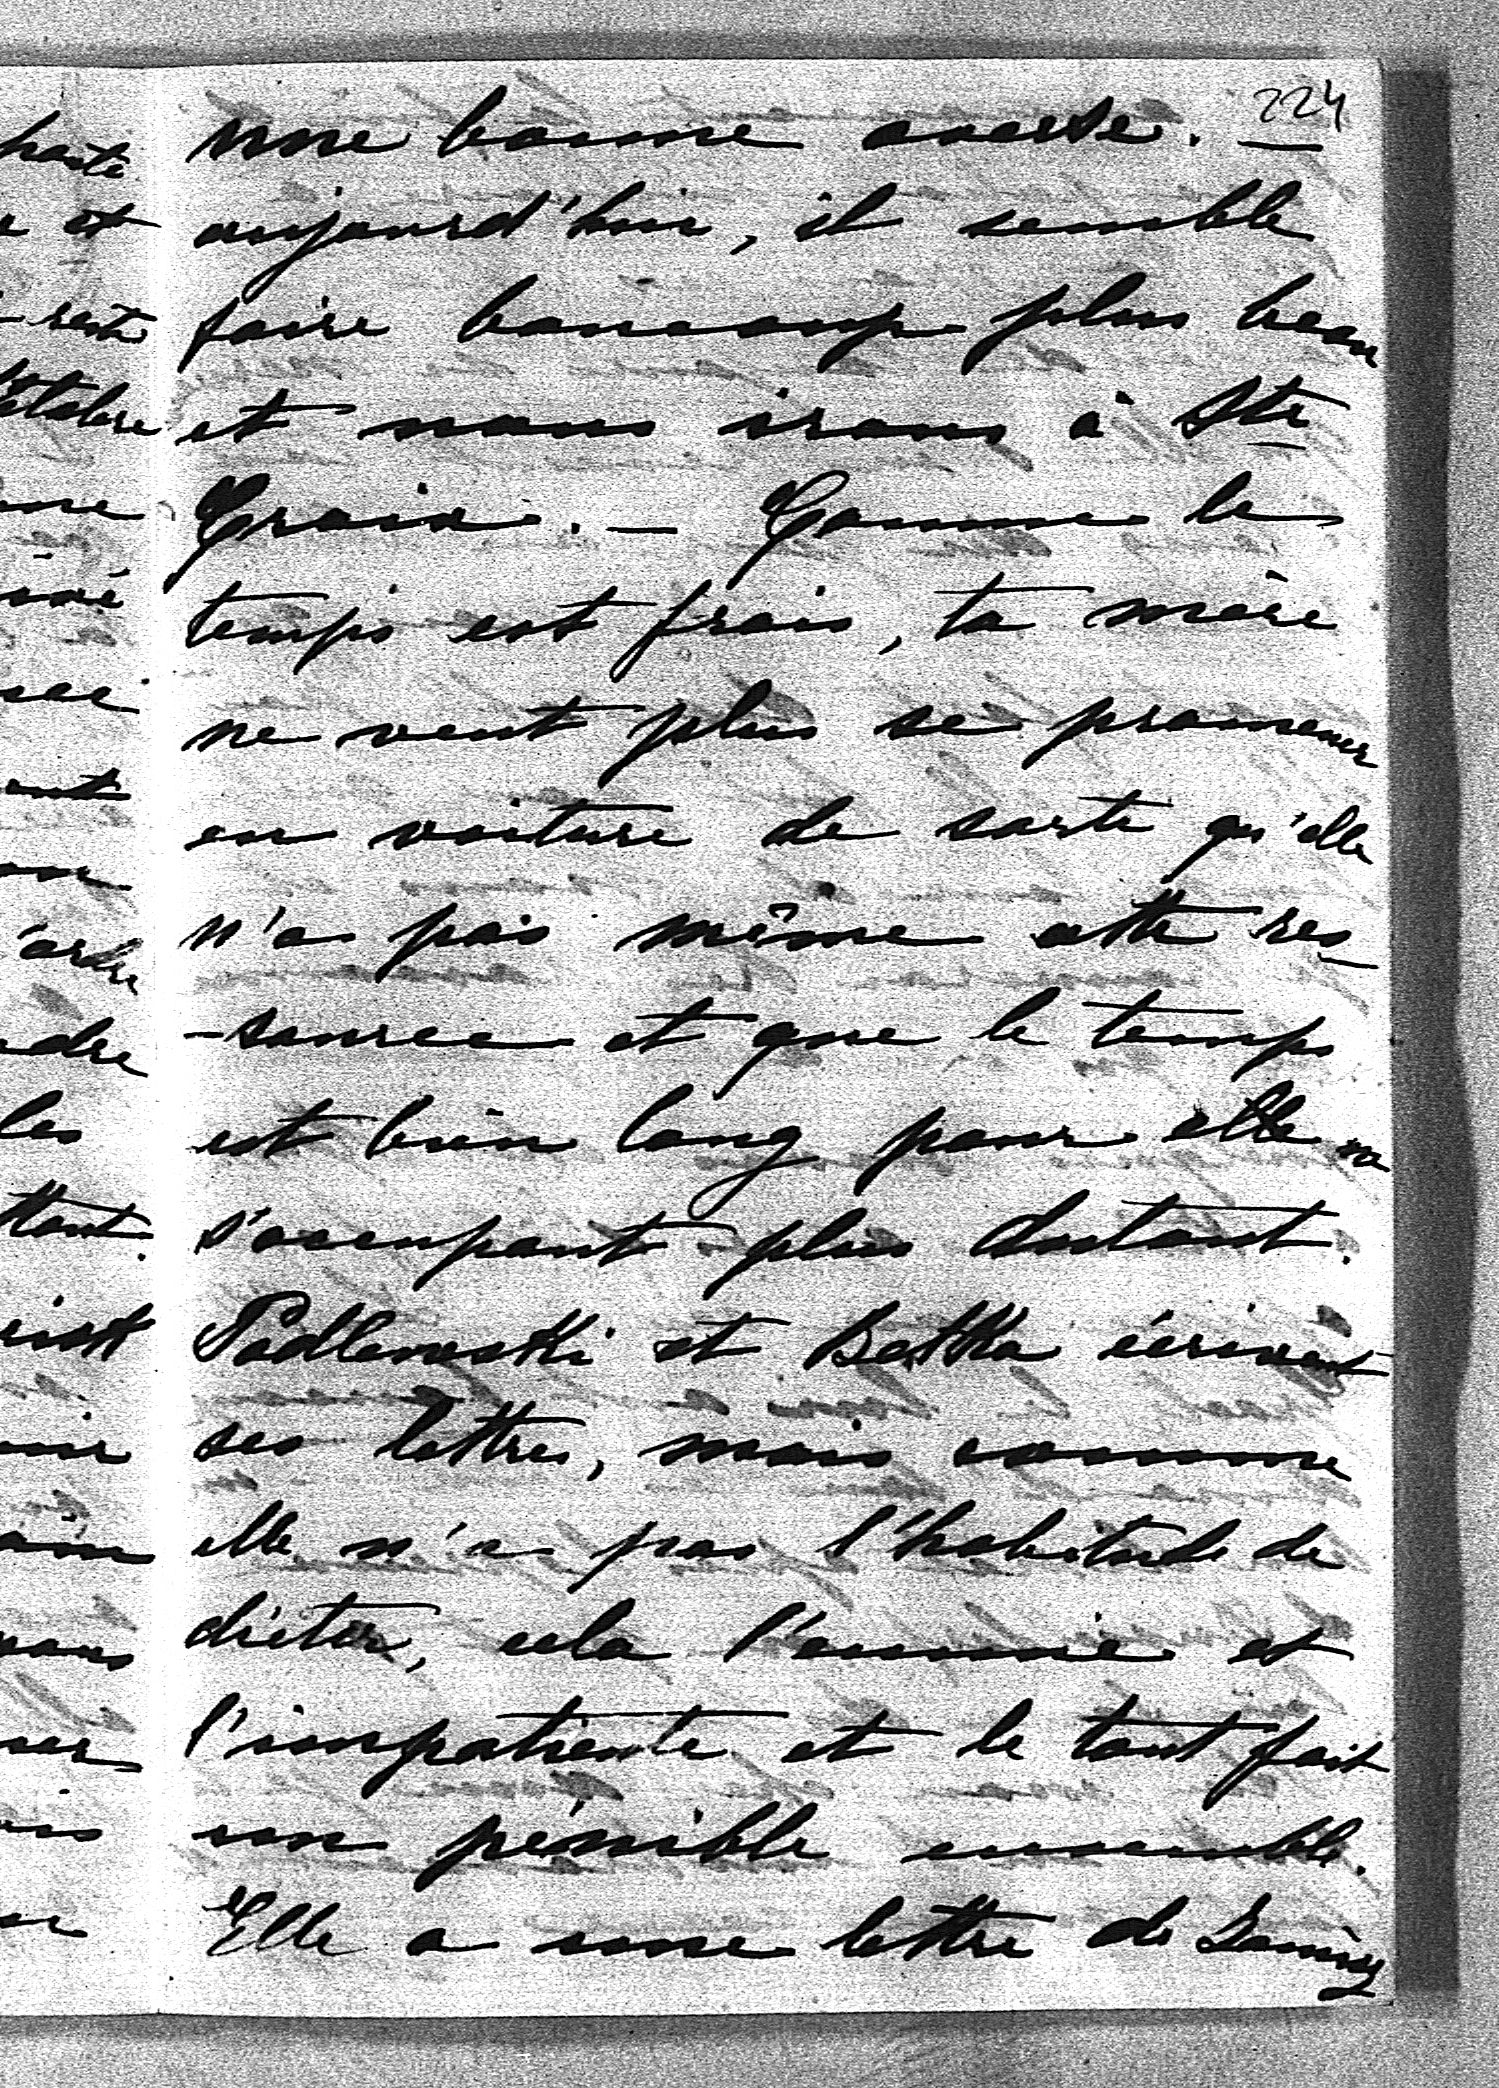 224
une bonne averse. —
aujourd'hui, il semble
faire beaucoup plus beau
et nous irons à Ste
Croix. — Comme le
temps est frais, ta mère
ne veut plus se promener
en voiture de sorte qu'elle
n'a pas même cette res-
-source et que le temps
est bien long pour elle ne
s'occupant plus autant.
Podlewski et Botka écrivent
ses lettres, mais comme
elle n'a pas l'habitude de
dicter, cela l'ennuie et
l'impatiente et le tout fait
un pénible ensemble.
Elle a une lettre de